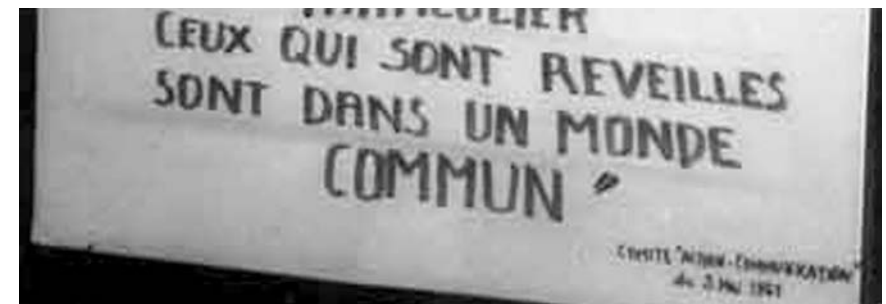 PARTICULIER
CEUX QUI SONT REVEILLES
SONT DANS UN MONDE
COMMUN "
COMITE "ACTION-COMMUNICATION"
du 3 Mai